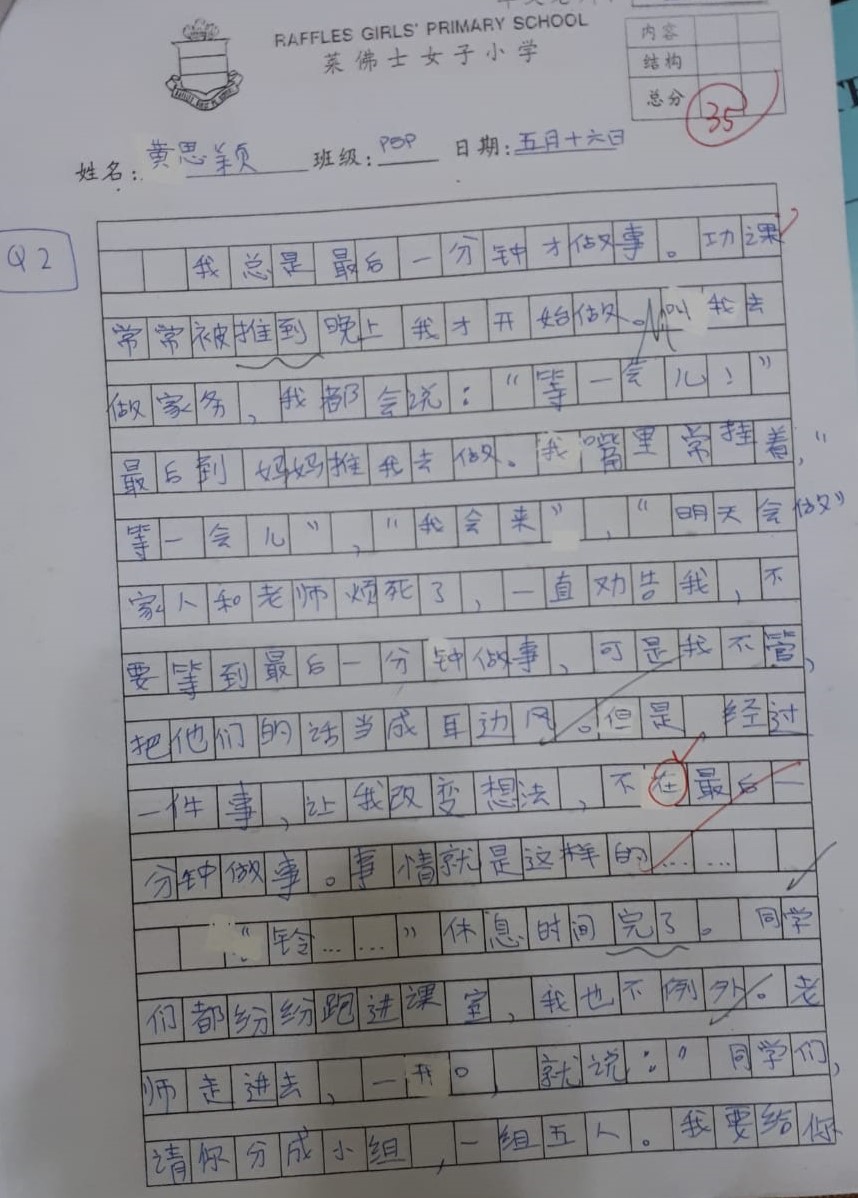 RAFFLES GIRLS' PRIMARY SCHOOL
莱佛士女子小学
内容
结构
总分
35
姓名: 黄思颖 班级: P5P 日期: 五月十六日
Q2
我总是最后一分钟才做事。功课
常常被推到晚上我才开始做。叫我去
做家务，我都会说：“等一会儿！”
最后到妈妈推我去做。我嘴里常挂着，“
等一会儿”，“我会来”，“明天会做”
家人和老师烦死了，一直劝告我，不
要等到最后一分钟做事，可是我不管，
把他们的话当成耳边风。但是，经过
一件事，让我改变想法，不在最后一
分钟做事。事情就是这样的……
“铃……”休息时间完了。同学
们都纷纷跑进课室，我也不例外。老
师走进去，一开口，就说：“同学们，
请你分成小组，一组五人。我要给你